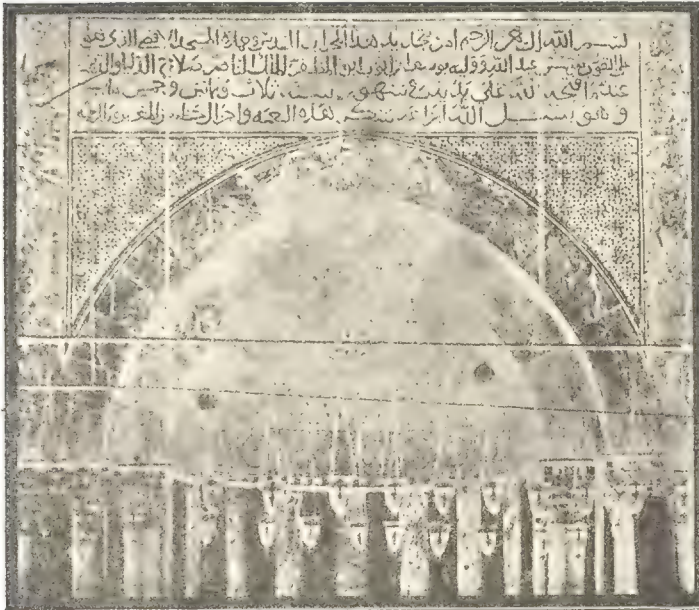 بسم الله الرحمن الرحيم امر بتجديد هذا المحراب المقدس وعمارة المسجد الاقصى الذي هو
على التقوى مؤسس عبد الله ووليه يوسف بن ايوب ابو المظفر الملك الناصر صلاح الدنيا والدين
عندما فتحه الله على يديه في شهور سنة ثلاث وثمانين وخمس مايه
وهو يسئل الله ايزاعه شكر هذه النعمة واجزال حظه من المغفرة والرحمة